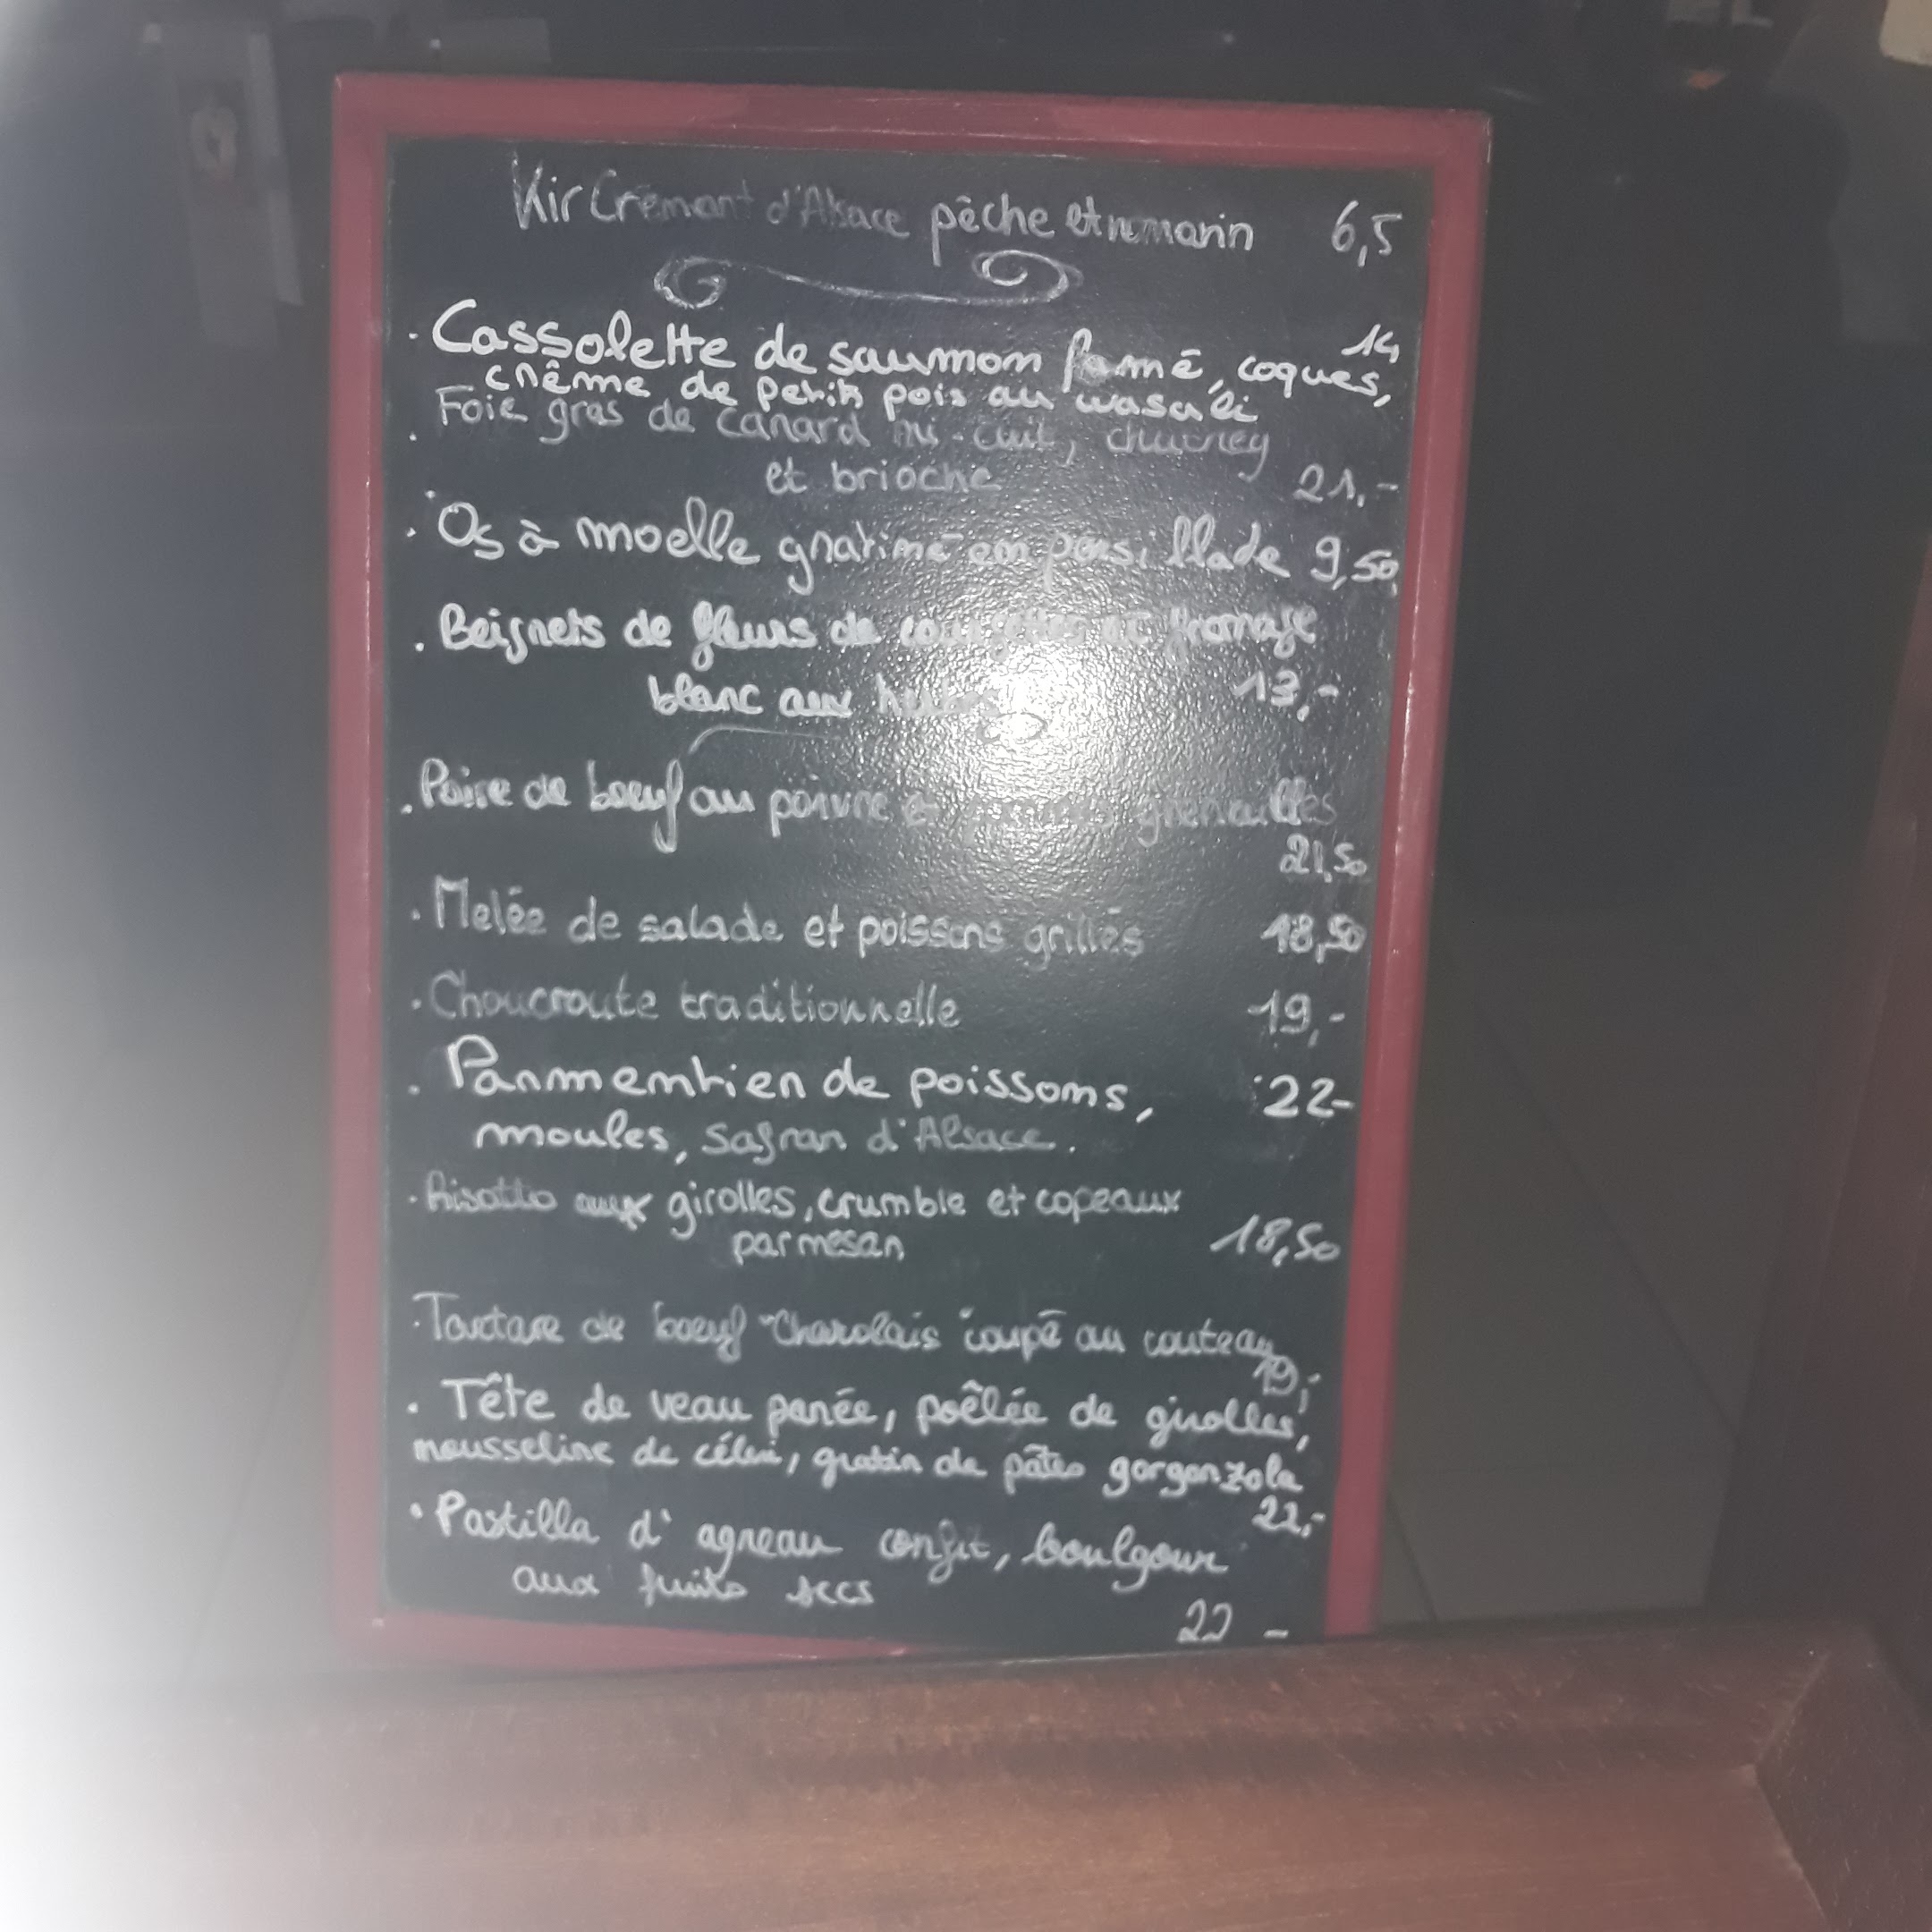 Kir Crémant d'Alsace pêche et romarin 6,5
. Cassolette de saumon fumé, coques, 14,
crème de petits pois au wasabi
. Foie gras de canard mi-cuit, chutney
et brioche 21,-
. Os à moelle gratiné en persillade 9,50
. Beignets de fleurs de courgette et fromage
blanc aux herbes 13,-
. Poire de boeuf au poivre et grenailles
21,50
. Mêlée de salade et poissons grillés 18,50
. Choucroute traditionnelle 19,-
. Parmentier de poissons, 22-
moules, Safran d'Alsace.
. Risotto aux girolles, crumble et copeaux
parmesan 18,50
. Tartare de boeuf "Charolais" coupé au couteau
19,-
. Tête de veau panée, poêlée de girolles,
mousseline de céleri, gratin de pâtes gorgonzola
22,-
. Pastilla d'agneau confit, boulgour
aux fruits secs
22 -